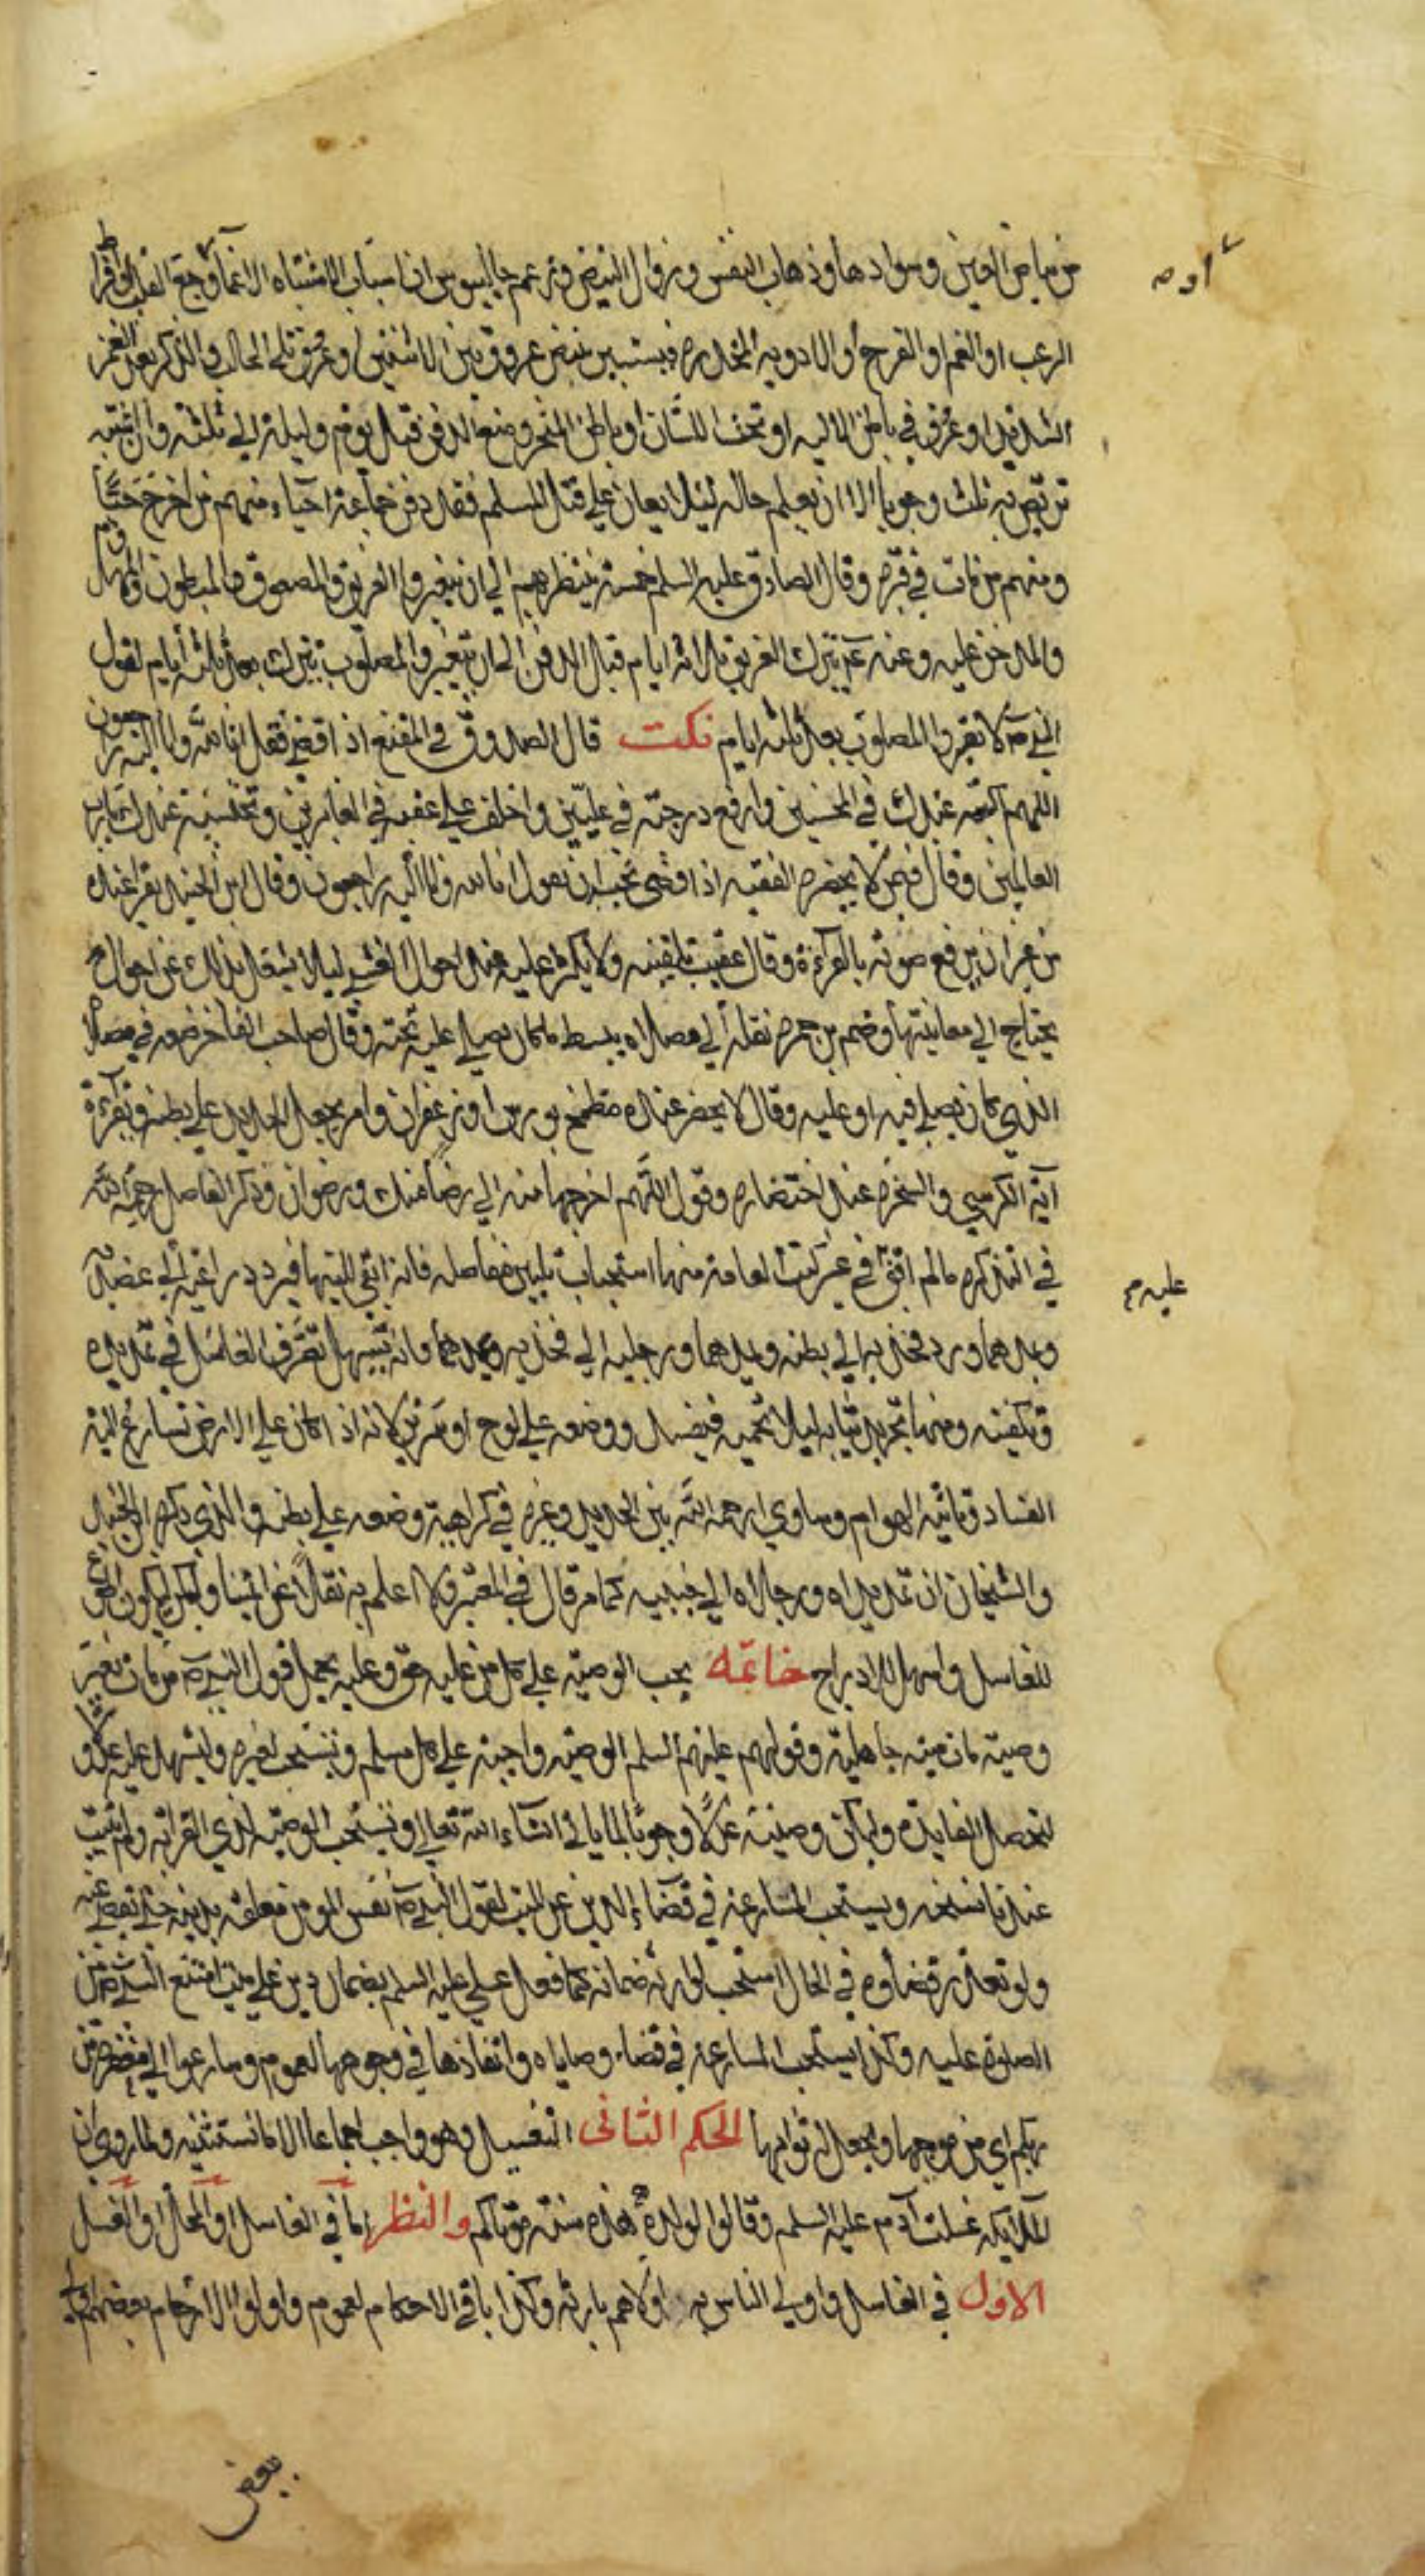 من بياض العين وسوادها وذهاب النفس وزوال النبض وزعم جالينوس ان اسباب الاشتباه الاغماء او وجع القلب او افراط
او ص
الرعب او الغم او الفرح أو الادوية المخدرة فيستبين بنبض عروق بين الانثيين او عرق يلي الحالب والذكر بعد الغمز
الشديد او عرق في باطن الالية او تحت اللسان او باطن المنخر ومنع الدفن قبل يوم وليلة الى ثلثة والمشتبه
تربص به ثلث وجوبا الا ان يعلم حاله لئلا يعان على قتل المسلم فقد دفن جماعة احياء منهم من اخرج حيًا
ومنهم من مات في قبره وقال الصادق عليه السلم خمسة ينتظر بهم الى ان يتغيروا الغريق والمصعوق والمبطون والمهدوم
والمدخن عليه وعنه ع يترك الغريق ثلاثة ايام قبل الدفن الى ان يتغير والمصلوب ينزل بعد ثلثه أيام لقول
النبي ص لا تقروا المصلوب بعد ثلثه ايام نكت قال الصدوق في المقنع اذا قضى فقل انا لله وانا اليه راجعون
اللهم اكتبه عندك في المحسنين وارفع درجته في عليين واخلف على عقبه في الغابرين ونحتسبه عندك يا رب
العالمين وقال في من لا يحضره الفقيه اذا قضى يجب ان يقول انا لله وانا اليه راجعون وقال ابن الجنيد يقرا عنده
من غير ان يرفع صوته بالقراءة وقال عقيب تلقينه ولا يكثر عليه عند احوال الغشى ليلا يشتغل بذلك عن احوال
يحتاج الى معاينتها وضم من حضره نقله الى مصلاه يبسط ما كان يصلي عليه تحته وقال صاحب الفاخر ضعه في مصلاه
الذي كان يصلي فيه او عليه وقال لا يحضر عنده مطمخ بورس او زعفران وامر بجعل الحديد على بطنه وبقراءة
آية الكرسي والسخرة عند احتضاره وقول اللهم اخرجها منه الى رضا منك ورضوان وذكر الفاضل رحمه الله
في التذكرة ما لم اقف في غير كتب العامة منها استحباب تليين مفاصله فانه ابقى للينها فيرد ذراعيه الى عضديه
عليه م
ويمدهما ويرد فخذيه الى بطنه ويمدهما ورجليه الى فخذيه ويمدهما فانه يسهل تصرف الغاسل في تمديده
وتكفينه ومنها تجريد ثيابه ليلا تحميه فيفسد ووضعه على لوح او سرير لانه اذا كان على الارض تسارع اليه
الفساد ونالته الهوام وساوى رحمه الله بين الحديد وغيره في كراهية وضعه على بطنه والذي ذكره ابن الجنيد
والشيخان ان تمد يداه ورجلاه الى جنبيه كما مر قال في المعتبر ولا اعلم به نقلا عن ائمتنا ولكن ليكون اطوع
للغاسل واسهل للادراج خاتمة يجب الوصية على كل من عليه حق وعليه يحمل قول النبي ص من مات بغير
وصية مات ميتة جاهلية وقولهم عليهم السلم الوصية واجبة على كل مسلم ويستحب لغيره وليشهد عليه عدلا
لتحصل الفايدة وليكن وصيته عدلًا وجوبًا لما ياتي انشاء الله تعالى ويستحب الوصية لذوي القرابة ولم يثبت
عندنا نسخه ويستحب المسارعة في قضاء الدين عن الميت لقول النبي ص نفس المومن معلقة بدينه حتى يقضى عنه
ولو تعذر قضاؤه في الحال استحب لوارثه ضمانه كما فعل علي عليه السلم بضمان دين على ميت امتنع النبي ص من
الصلوة عليه وكذا يستحب المسارعة في قضاء وصاياه وانفاذها في وجوهها لعموم وسارعوا الى مغفرة من
ربكم اي من موجبها ويجعل له ثوابها الحكم الثانى التغسيل وهو واجب اجماعا الا ما نستثنيه ولما روي ان
الملايكة غسلت آدم عليه السلم وقالوا لولده هذه سنة موتاكم والنظر اما في الغاسل او المحل او الغسل
الاول في الغاسل واولى الناس به اولاهم بارثه وكذا باقي الاحكام لعموم واولوا الارحام بعضهم اولى
ببعض